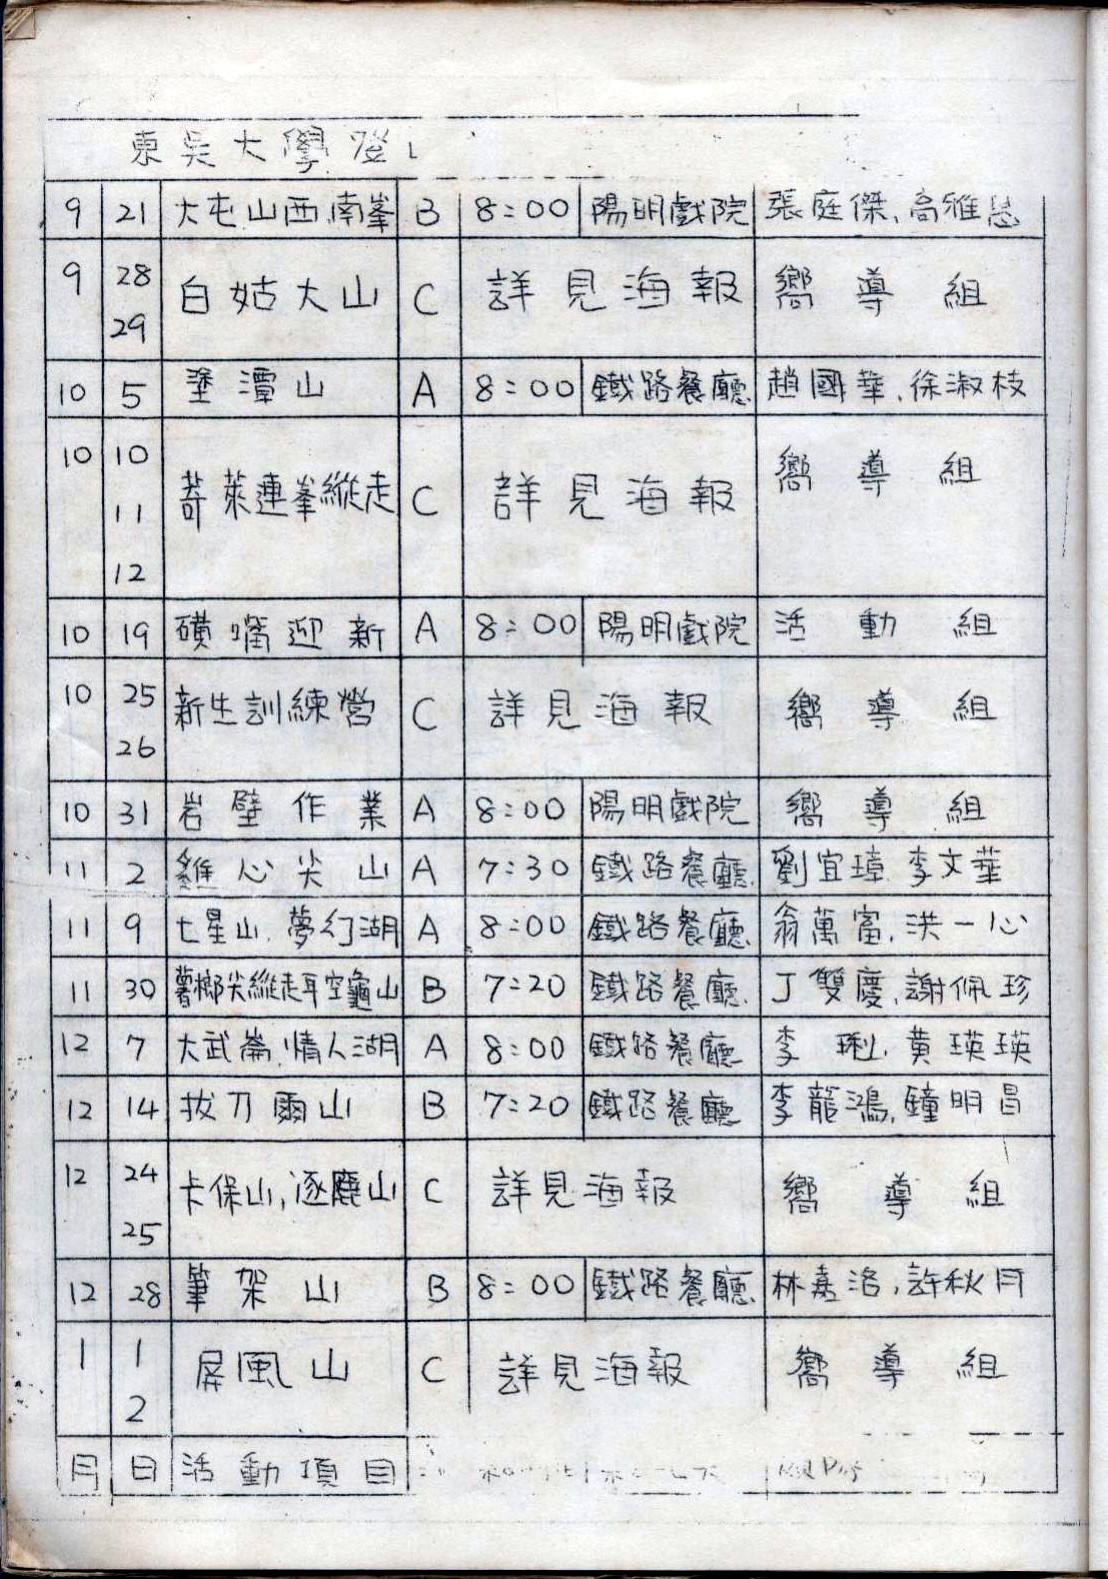 東吳大學登
9 21 大屯山西南峯 B 8:00 陽明戲院 張庭傑、高雅慧
9 28 29 白姑大山 C 詳見海報 嚮導組
10 5 塗潭山 A 8:00 鐵路餐廳 趙國華、徐淑枝
10 10 11 12 奇萊連峯縱走 C 詳見海報 嚮導組
10 19 磺嘴迎新 A 8:00 陽明戲院 活動組
10 25 26 新生訓練營 C 詳見海報 嚮導組
10 31 岩壁作業 A 8:00 陽明戲院 嚮導組
11 2 雞心尖山 A 7:30 鐵路餐廳 劉宜璋 李文華
11 9 七星山、夢幻湖 A 8:00 鐵路餐廳 翁萬富、洪一心
11 30 薯榔尖縱走耳空龜山 B 7:20 鐵路餐廳 丁雙慶、謝佩珍
12 7 大武崙、情人湖 A 8:00 鐵路餐廳 李琍、黄瑛瑛
12 14 拔刀爾山 B 7:20 鐵路餐廳 李龍鴻、鐘明昌
12 24 25 卡保山,逐鹿山 C 詳見海報 嚮導組
12 28 筆架山 B 8:00 鐵路餐廳 林嘉洛,許秋月
1 1 2 屏風山 C 詳見海報 嚮導組
月 日 活動項目